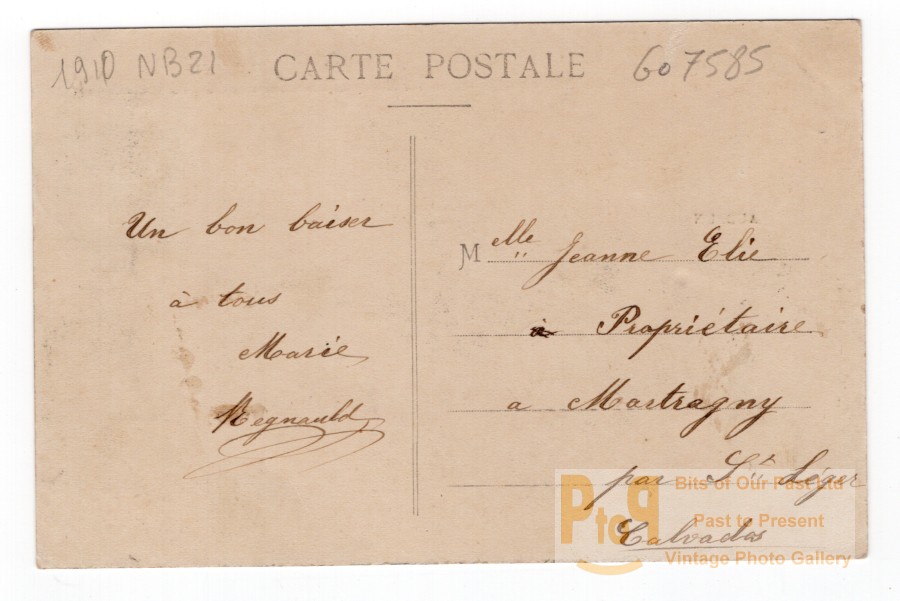 1910 NB21 CARTE POSTALE 607585
Un bon baiser
à tous
Marie
Regnauld
Melle Jeanne Elie
à Propriétaire
a Martragny
par St Léger
Calvados
PtoP
Bits of Our Past Ltd
Past to Present
Vintage Photo Gallery